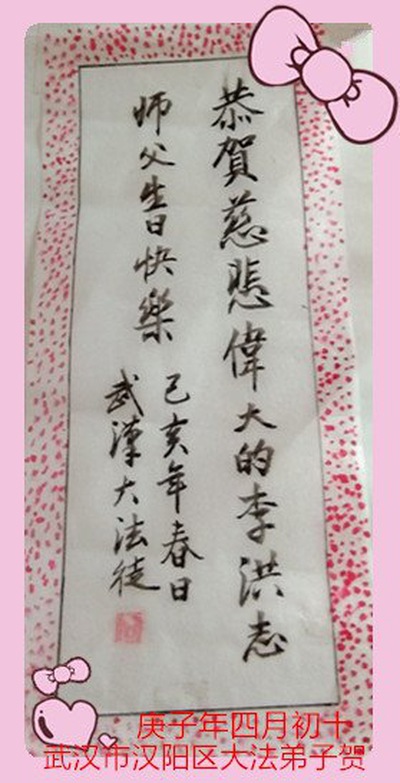 恭賀慈悲偉大的李洪志
师父生日快樂
己亥年春日
武漢大法徒
庚子年四月初十
武汉市汉阳区大法弟子贺